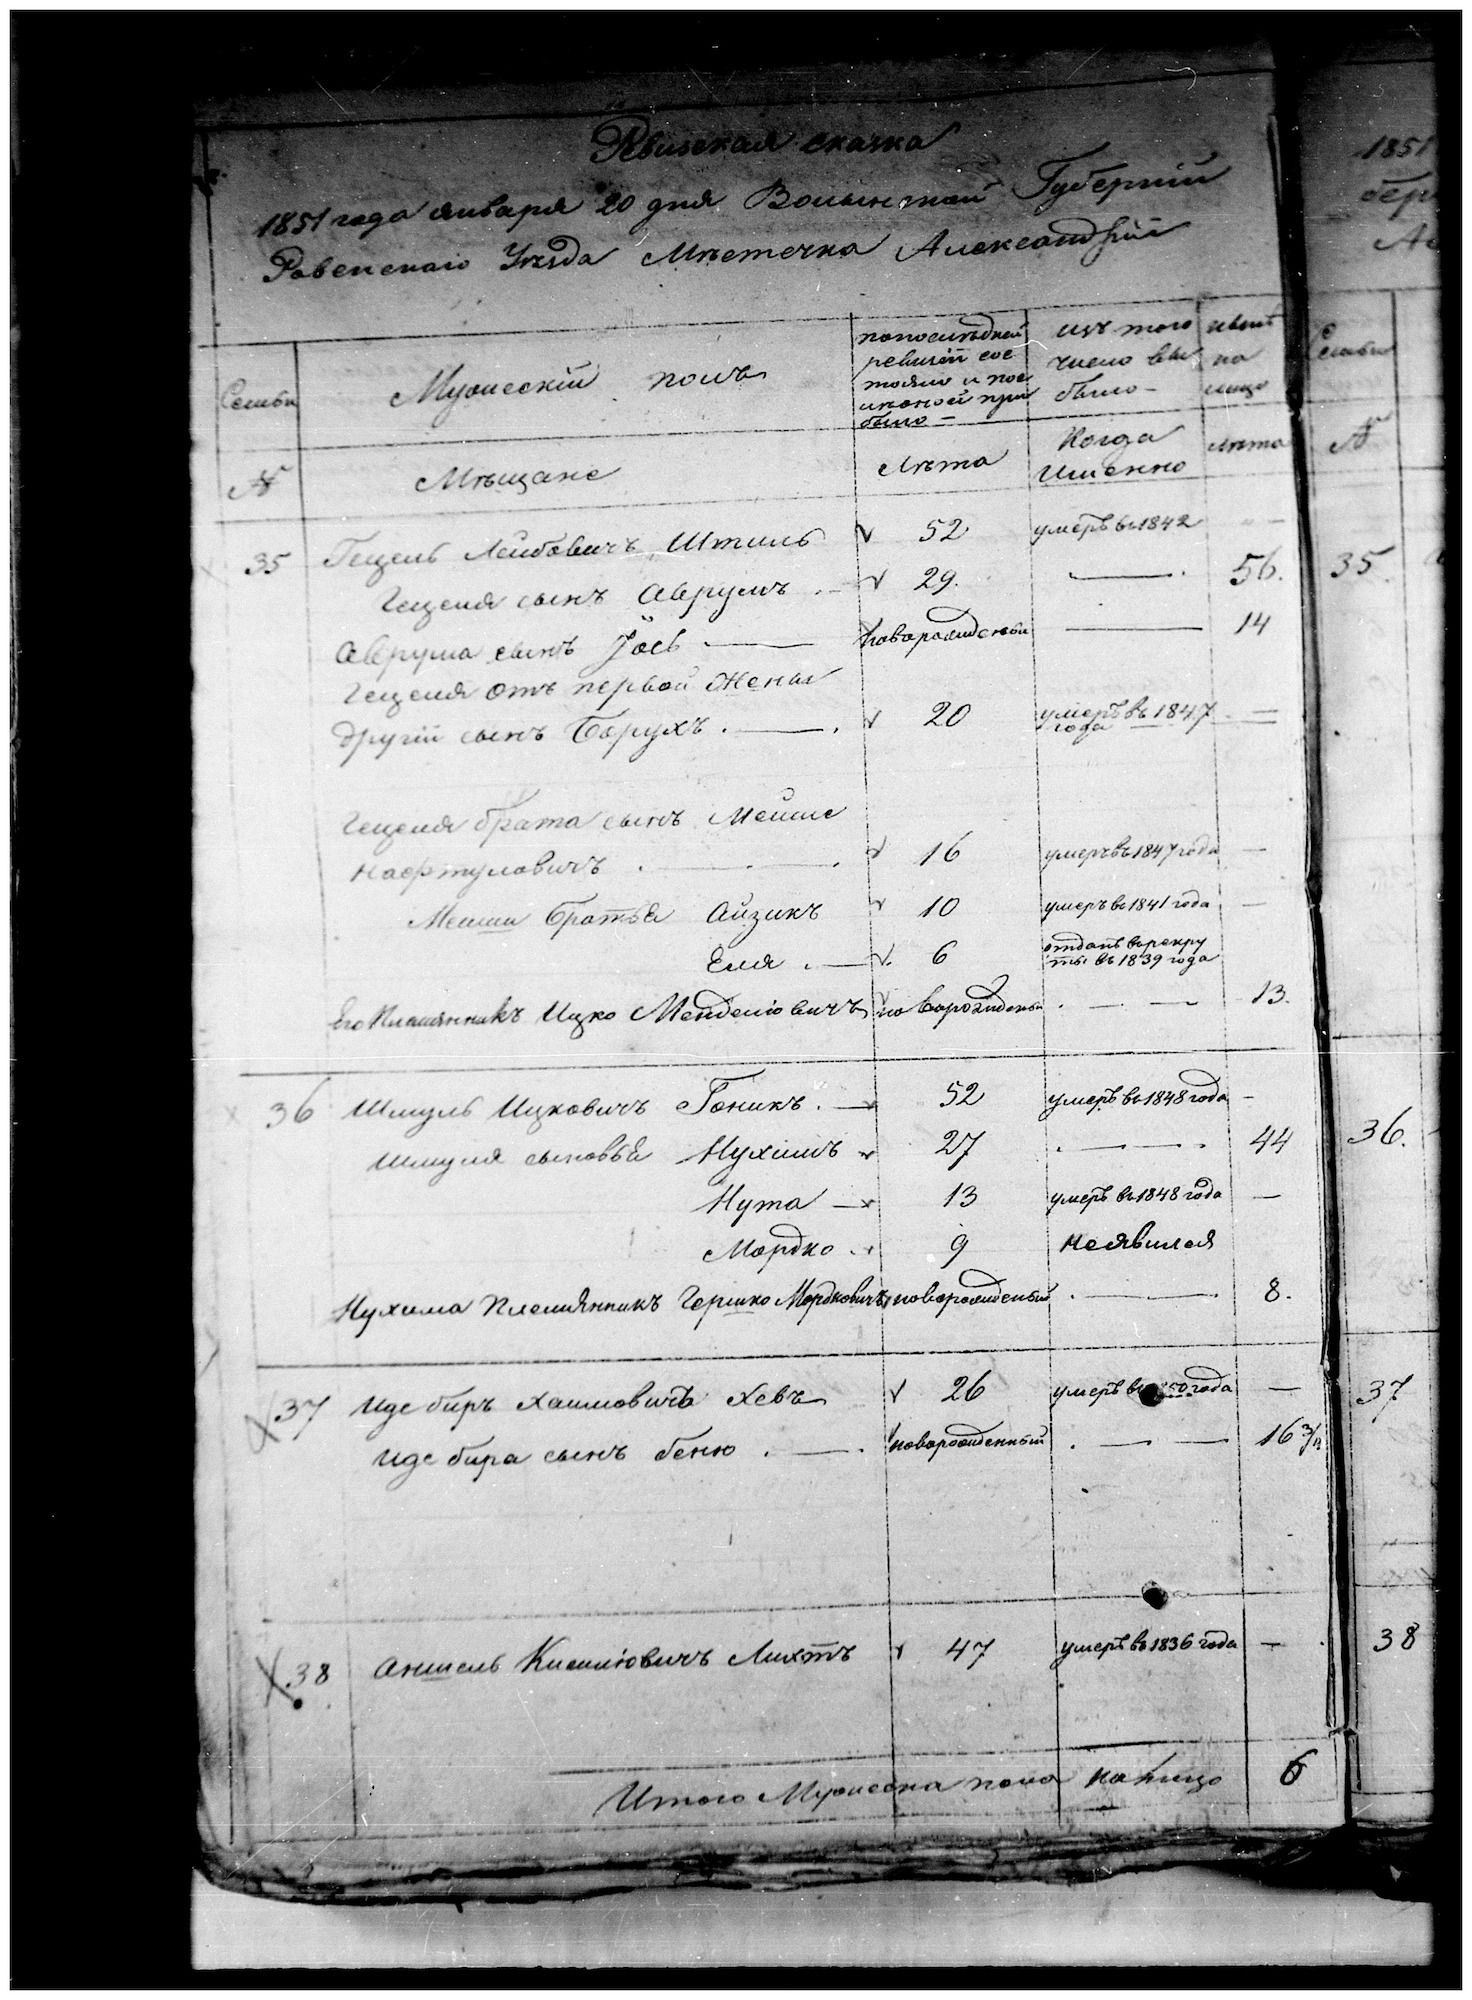 Ревизская сказка
1851 года января 20 дня Волынской Губернии
Ровенскаго Уезда Местечка Александрии
Семьи
Мужескій полъ
по последней
ревизіи сос
тояло и пос
ле оной при
было —
изъ того
число вы
было —
ныне
на
лицо
№
Мещане
Лета
Когда
Именно
лета
35 Гецель Лейбовичъ Штиль 52 умеръ въ 1842 — —
Гецеля сынъ Аврумъ — 29. — 56.
Аврума сынъ Іось — новорожденый — 14
Гецеля отъ первой Жены
другій сынъ Борухъ — 20 умеръ въ 1847 года —
Гецеля брата сынъ Мейше
Нафтуловичъ — 16 умеръ въ 1847 года —
Мейши братья Айзикъ 10 умеръ въ 1841 года —
Еля — 6 отданъ в рекру
ты въ 1839 года
Его Племянникъ Ицко Менделіовичъ новорожденый — — 13.
36 Шмуль Ицковичъ Гоникъ — 52 умеръ въ 1848 года —
Шмуля сыновья Нухимъ 27 — — 44
Нута — 13 умеръ въ 1848 года —
Мордко 9 неявился
Нухима Племянникъ Гершко Мордковичъ новорожденый — — 8.
37 Иде биръ Хаимовичъ Хевъ 26 умеръ въ года —
Иде бира сынъ беню — новорожденный — — 16 3/12
38 Аншель Киселіовичъ Лихтъ 47 умеръ въ 1836 года —
Итого Мужеска пола на лицо 6
1851
35.
36.
37
38